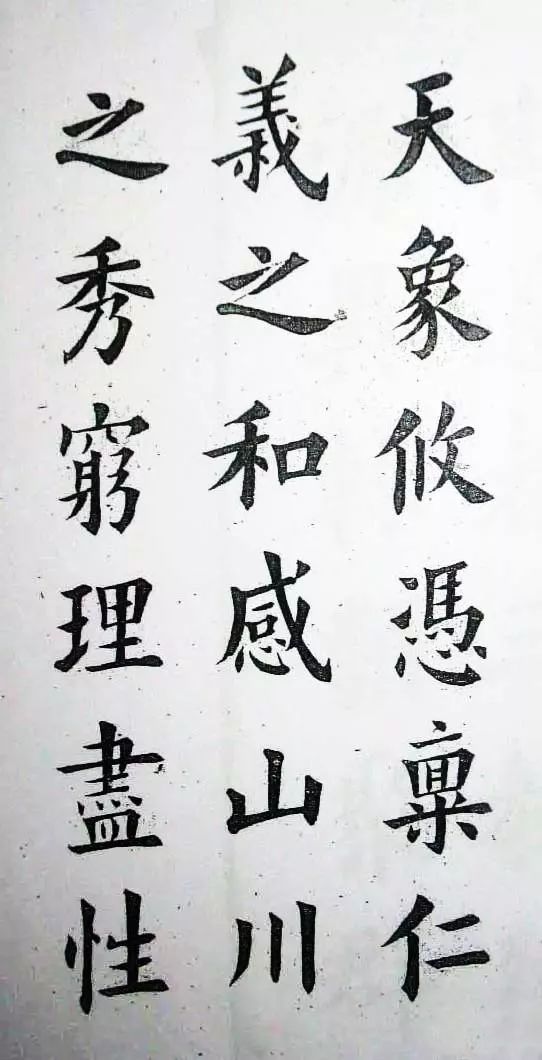 天象攸憑禀仁
義之和感山川
之秀窮理盡性